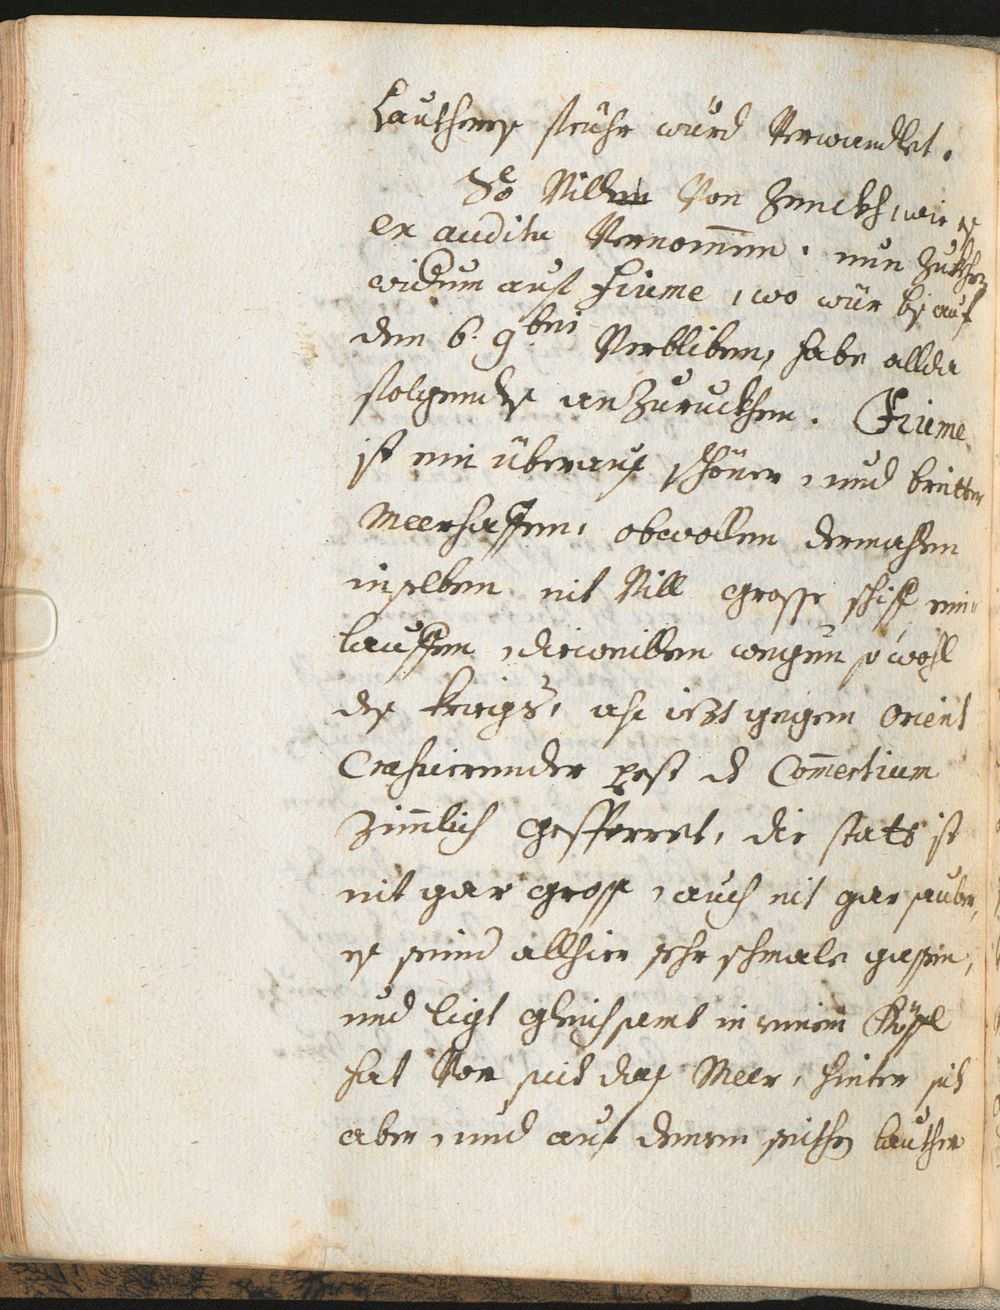 Lautherß stainer würd Verwandlet.
So Villen Von Zenckh, wie eß
ex auditu Vernommen. nun Zurukher
widum auß Fiume, wo wür biß auf
den 6. 9bris Verbliben, habe allda
folgendeß anZuruckhen. Fiume
ist ein überauß schöner, und breitter
Meerhaffen, obwollen dermahlen
inselben nit Vill grosse schiff ein=
lauffen, dieweillen wegen sowohl
deß kriegs, alß iezt gegen Orient
Crasierender pest daß Commertium
Zimmlich gespferret, die statt ist
nit gar groß, auch nit gar sauber,
eß seind allhier sehr schmale gassen,
und ligt gleichsamb in einem Kössl
hat Vor sich daß Meer, hinter sich
aber, und auf denen seithen lauther